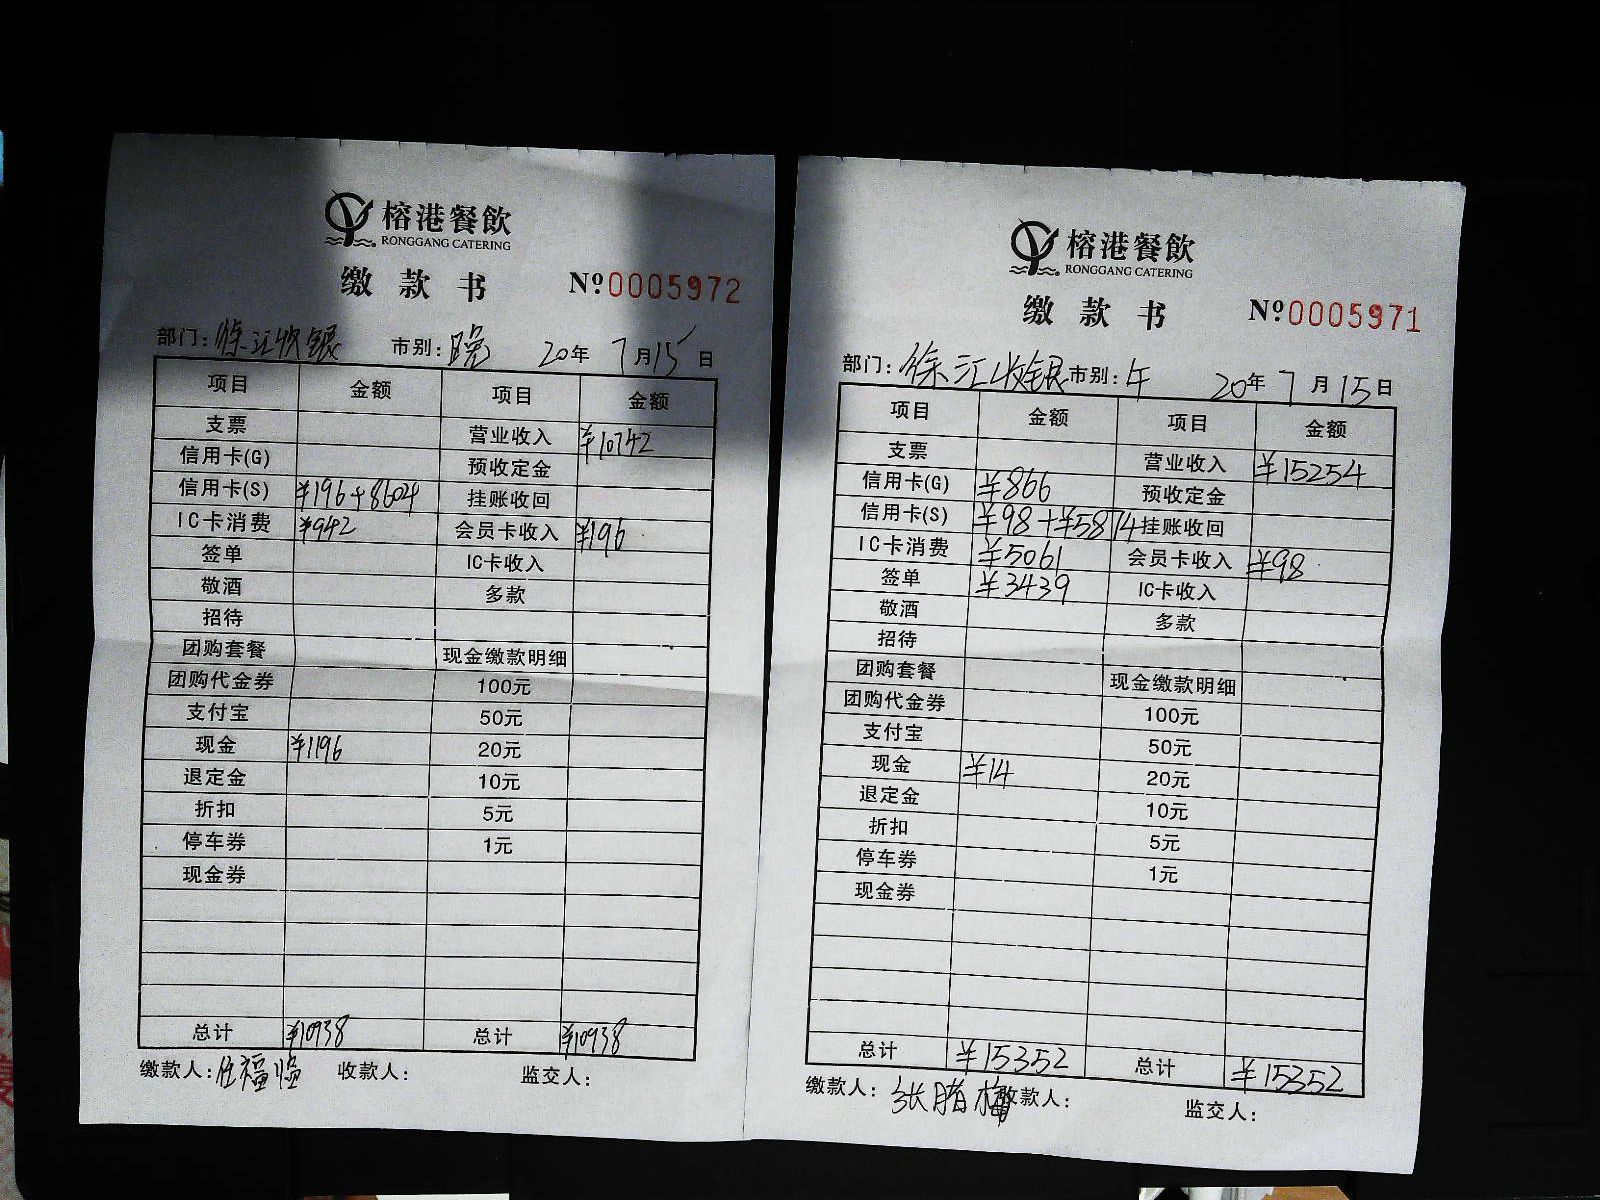 榕港餐飲
RONGGANG CATERING
缴款书 №0005972
部门：徐江收银 市别：晚 20年7月15日
项目 金额 项目 金额
支票 营业收入 ¥10742
信用卡(G) 预收定金
信用卡(S) ¥196+8604 挂账收回
IC卡消费 ¥942 会员卡收入 ¥196
签单 IC卡收入
敬酒 多款
招待
团购套餐 现金缴款明细
团购代金券 100元
支付宝 50元
现金 ¥1196 20元
退定金 10元
折扣 5元
停车券 1元
现金券
总计 ¥10938 总计 ¥10938
缴款人：伍福 收款人： 监交人：
榕港餐飲
RONGGANG CATERING
缴款书 №0005971
部门：徐江收银 市别：午 20年7月15日
项目 金额 项目 金额
支票 营业收入 ¥15254
信用卡(G) ¥866 预收定金
信用卡(S) ¥98+¥5874 挂账收回
IC卡消费 ¥5061 会员卡收入 ¥98
签单 ¥3439 IC卡收入
敬酒 多款
招待
团购套餐 现金缴款明细
团购代金券 100元
支付宝 50元
现金 ¥14 20元
退定金 10元
折扣 5元
停车券 1元
现金券
总计 ¥15352 总计 ¥15352
缴款人：张腊梅 收款人： 监交人：